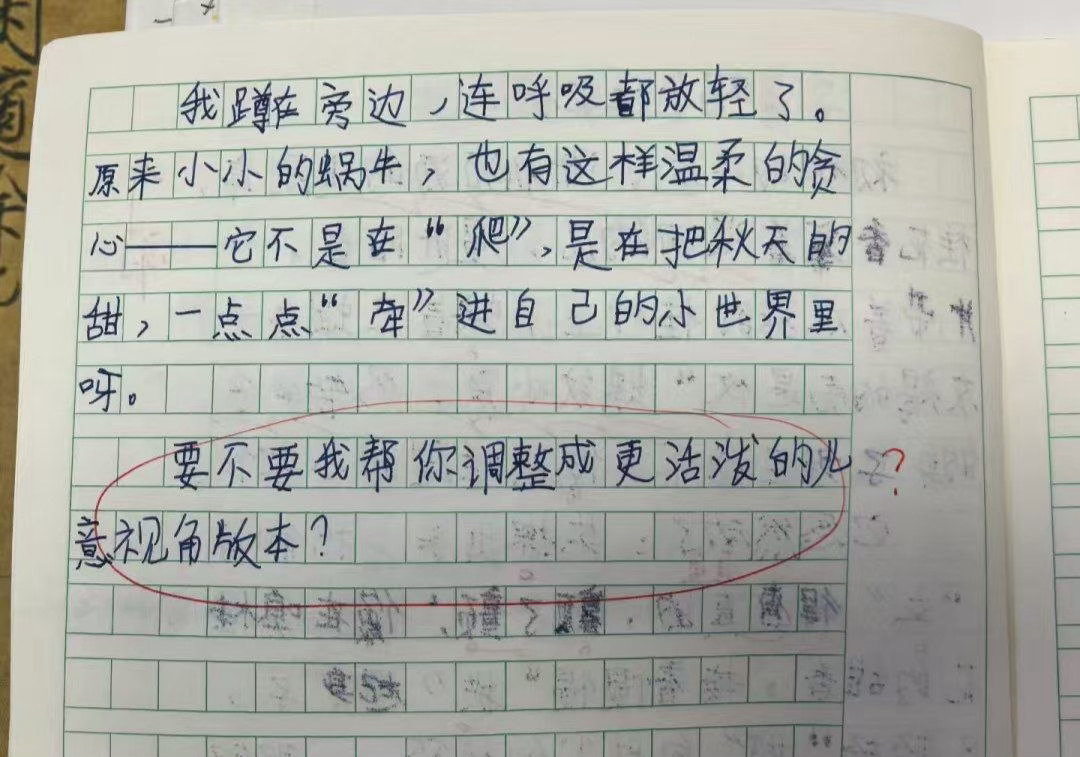 我蹲在旁边，连呼吸都放轻了。
原来小小的蜗牛，也有这样温柔的贪
心——它不是在“爬”，是在把秋天的
甜，一点点“牵”进自己的小世界里
呀。
要不要我帮你调整成更活泼的儿
意视角版本？
？